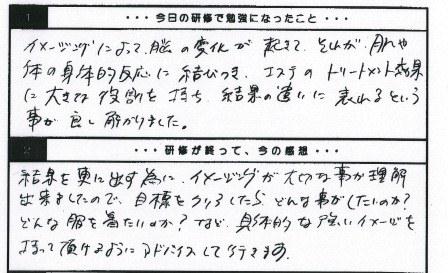 1 ・・・今日の研修で勉強になったこと・・・
イメージングによって、脳の変化が起きて、それが、肌や
体の身体的反応に結びつき、エステのトリートメント効果
に大きな役割を持ち、結果の違いに表れるという
事が良し解かりました。
2 ・・・研修が終って、今の感想・・・
結果を更に出す為に、イメージングが大切な事が理解
出来ましたので、目標をクリアしたらどんな事がしたいのか?
どんな服を着たいのか? など、具体的な強いイメージを
持って頂けるようにアドバイスして行きます。